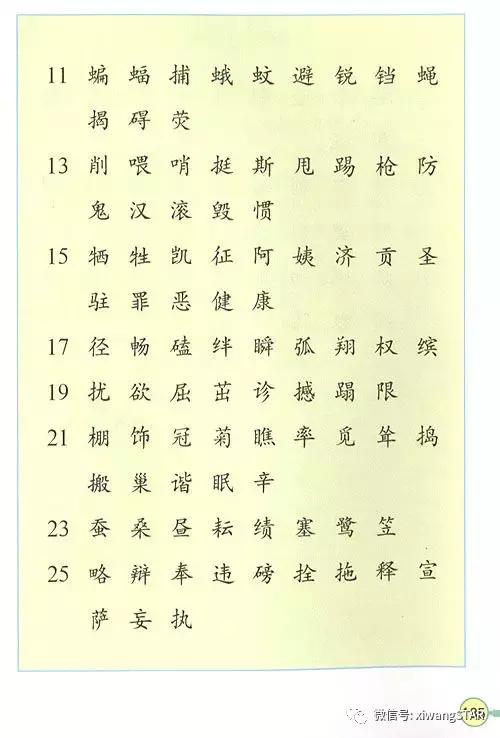 11 蝙 蝠 捕 蛾 蚊 避 锐 铛 蝇
揭 碍 荧
13 削 喂 哨 挺 斯 甩 踢 枪 防
鬼 汉 滚 毁 惯
15 牺 牲 凯 征 阿 姨 济 贡 圣
驻 罪 恶 健 康
17 径 畅 磕 绊 瞬 弧 翔 权 缤
19 扰 欲 屈 茁 诊 撼 蹋 限
21 棚 饰 冠 菊 瞧 率 觅 耸 捣
搬 巢 谐 眠 辛
23 蚕 桑 昼 耘 绩 塞 鹭 笠
25 略 辩 奉 违 磅 拴 拖 释 宣
萨 妄 执
微信号: xiwangSTAR